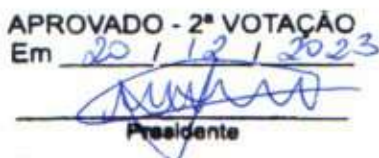 APROVADO - 2ª VOTAÇÃO
Em 20 / 12 / 2023
Presidente